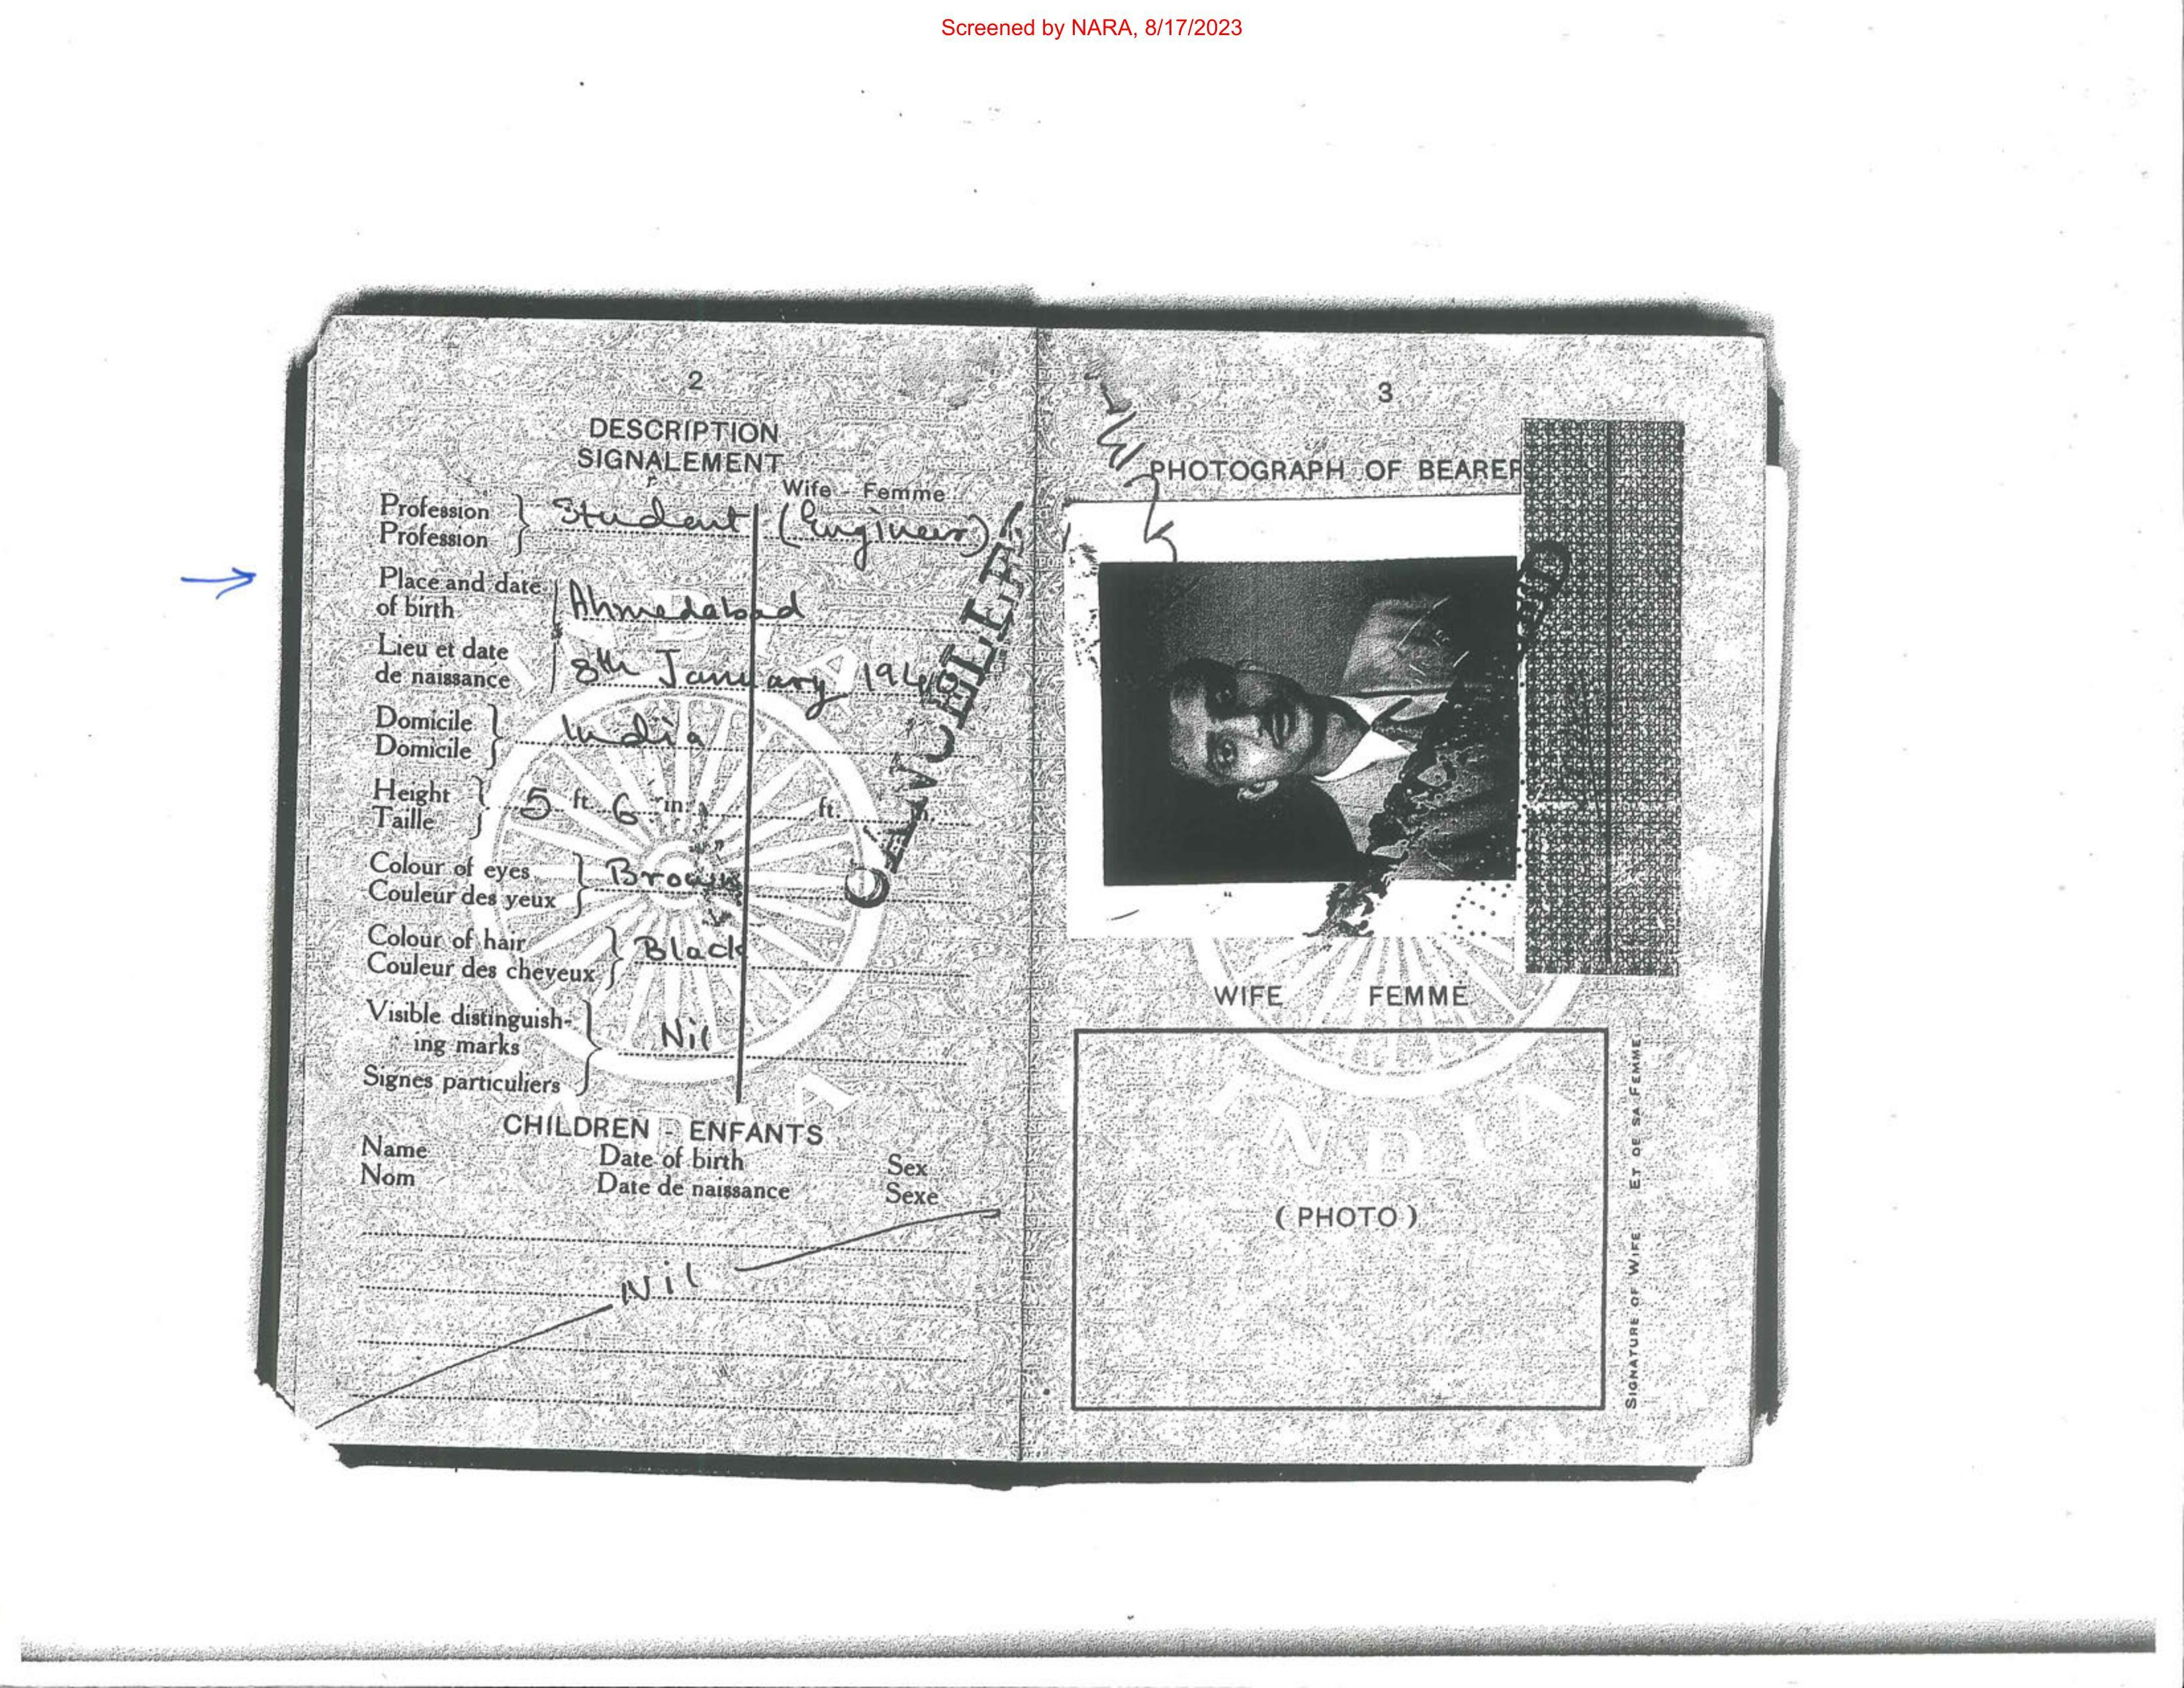 Screened by NARA, 8/17/2023
2
DESCRIPTION
SIGNALEMENT
Wife - Femme
Profession
Profession
Student (Engineer)
Place and date
of birth
Ahmedabad
Lieu et date
de naissance
8th January
Domicile
Domicile
India
Height
Taille
5 ft. 6 in.
ft.
Colour of eyes
Couleur des yeux
Brown
Colour of hair
Couleur des cheveux
Black
Visible distinguish-
ing marks
Signes particuliers
Nil
CANCELLED
CHILDREN - ENFANTS
Name
Nom
Date of birth
Date de naissance
Sex
Sexe
Nil
INDIA
3
PHOTOGRAPH OF BEARER
WIFE FEMME
INDIA
(PHOTO)
SIGNATURE OF WIFE ET DE SA FEMME